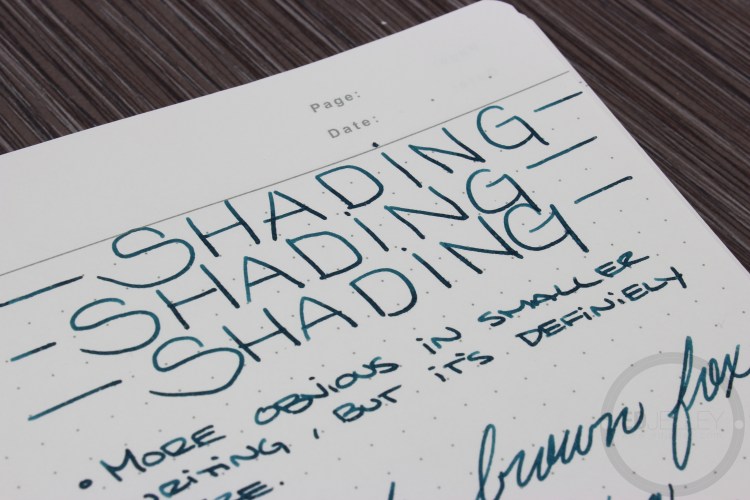 Page:
Date:
— SHADING —
— SHADING —
— SHADING —
• MORE OBVIOUS IN SMALLER
WRITING, BUT IT'S DEFINIELY
brown fox